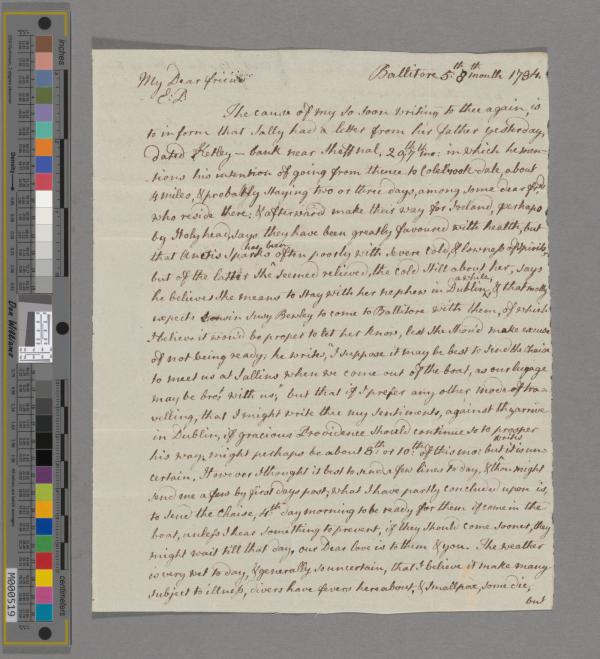 Ballitore 5th 8th month 1784.
My Dear friend
E:P:
The cause of my so soon writing to thee again, is
to inform that Sally had a letter from her father yesterday,
dated Ketley-bank near Shiffnal, 29th 7th mo: in which he men-
tions his intention of going from thence to Colebrook-dale, about
4 miles, & probably staying two or three days, among some dear frds
who reside there; & afterward make their way for Ireland, perhaps
by Holyhead, says they have been greatly favoured with health, but
that Sparks has been often poorly with severe cold, & lowness of spirits,
but of the latter she seemed relieved, the cold still about her, says
he believes she means to stay with her nephew in Dublin awhile, & that Molly
expects Cousin Susy Bewley to come to Ballitore with them, of which
I believe it wou'd be proper to let her know, lest she shou'd make excuse
of not being ready; he writes, "I suppose it may be best to send the Chaise
to meet us at Sallins when we come out of the boat, as our lugage
may be bro't with us," but that if I prefer any other mode of tra-
velling, that I might write thee my sentiments, against they arrive
in Dublin, if gracious Providence should continue so to prosper
his way, might perhaps be about 8th or 10th of this mo: but it is un-
certain. However I thought it best to send a few lines to day, & thou might
send me a few by first days post, what I have partly conclud'd upon is,
to send the Chaise, 4th day morning to be ready for them if come in the
boat, unless I hear something to prevent, if they should come sooner, they
might wait till that day, our dear love is to them & you. The weather
is very wet to day, & generally so uncertain, that I believe it make many
subject to illness, divers have fevers hereabout, & Smallpox, some die,
but
inches
centimeters
Density
Don Williams
M080519